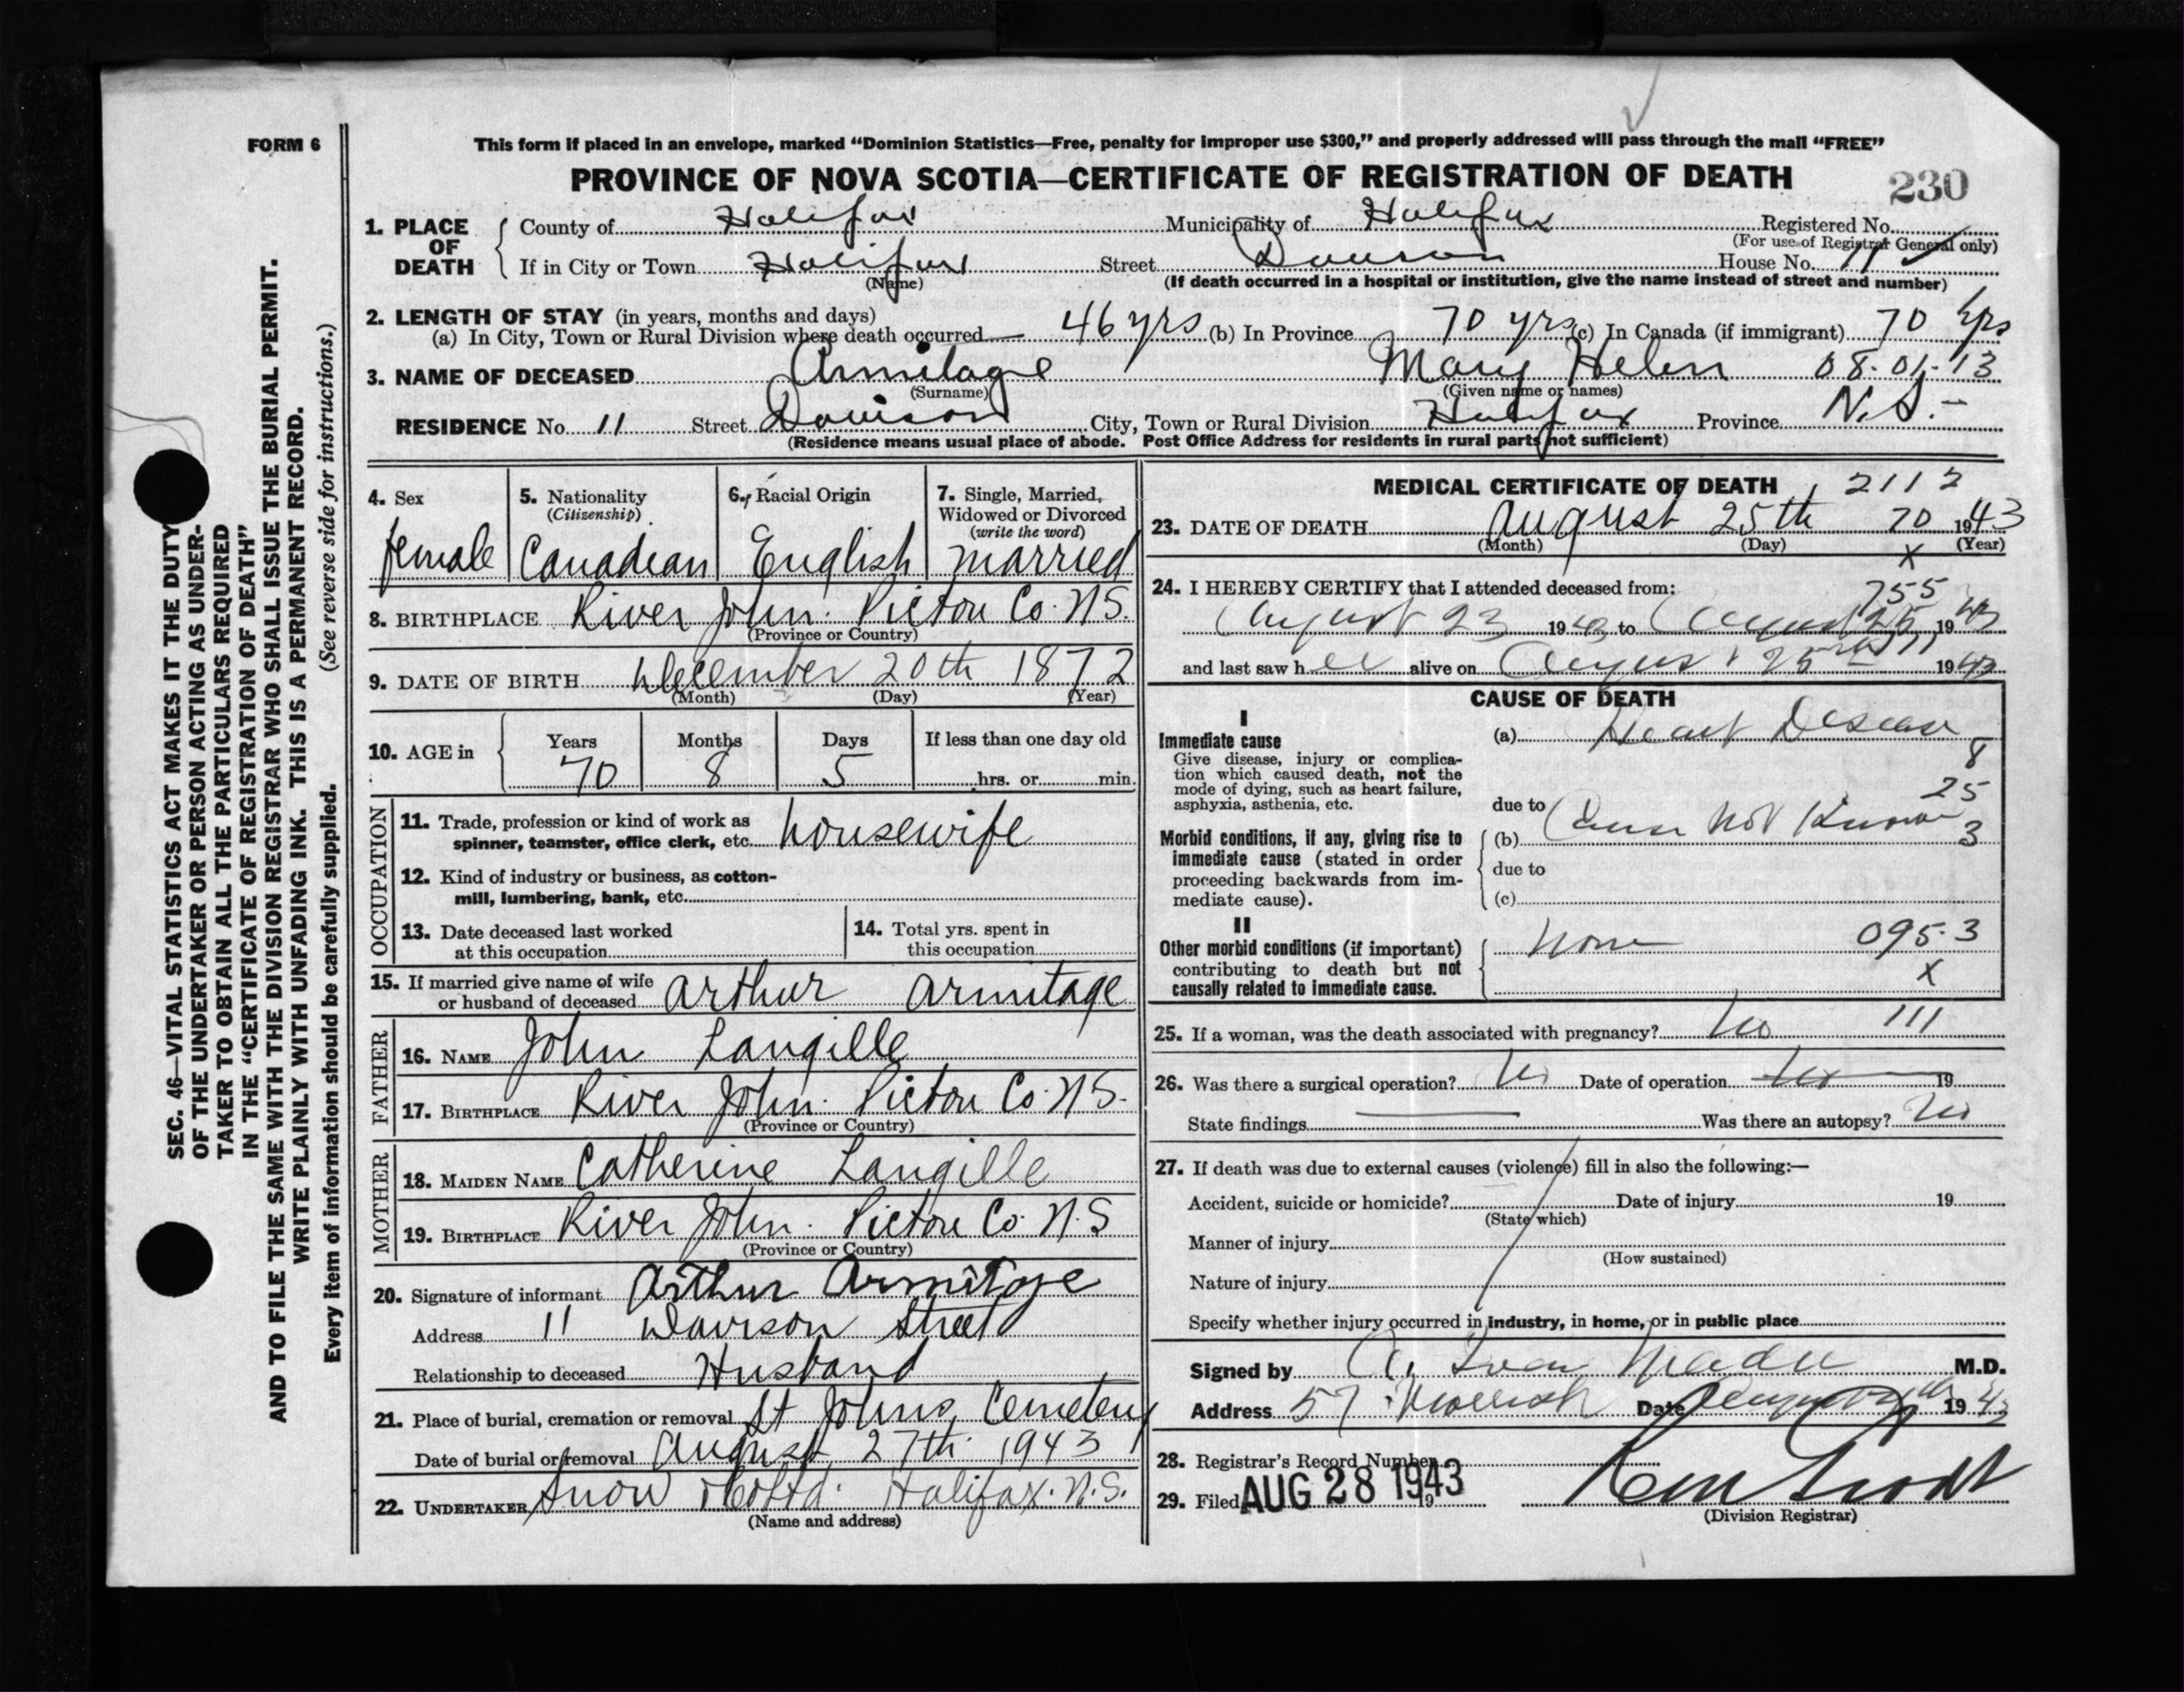 FORM 6
This form if placed in an envelope, marked “Dominion Statistics—Free, penalty for improper use $300,” and properly addressed will pass through the mail “FREE”
PROVINCE OF NOVA SCOTIA—CERTIFICATE OF REGISTRATION OF DEATH
230
1. PLACE OF DEATH County of Halifax Municipality of Halifax Registered No.
(For use of Registrar General only)
If in City or Town Halifax Street Davison House No. 11
(Name) (If death occurred in a hospital or institution, give the name instead of street and number)
2. LENGTH OF STAY (in years, months and days)
(a) In City, Town or Rural Division where death occurred 46 yrs (b) In Province 70 yrs (c) In Canada (if immigrant) 70 yrs
3. NAME OF DECEASED Armitage Mary Helen 08-01-13
(Surname) (Given name or names)
RESIDENCE No. 11 Street Davison City, Town or Rural Division Halifax Province N.S.-
(Residence means usual place of abode. Post Office Address for residents in rural parts not sufficient)
4. Sex female
5. Nationality (Citizenship) Canadian
6. Racial Origin English
7. Single, Married, Widowed or Divorced (write the word) married
8. BIRTHPLACE River John. Pictou Co. N.S.
(Province or Country)
9. DATE OF BIRTH December 20th 1872
(Month) (Day) (Year)
10. AGE in Years 70 Months 8 Days 5 If less than one day old hrs. or min.
OCCUPATION
11. Trade, profession or kind of work as
spinner, teamster, office clerk, etc. housewife
12. Kind of industry or business, as cotton-
mill, lumbering, bank, etc.
13. Date deceased last worked
at this occupation
14. Total yrs. spent in
this occupation
15. If married give name of wife
or husband of deceased Arthur Armitage
FATHER
16. NAME John Langille
17. BIRTHPLACE River John. Pictou Co. N.S.
(Province or Country)
MOTHER
18. MAIDEN NAME Catherine Langille
19. BIRTHPLACE River John. Pictou Co. N.S
(Province or Country)
20. Signature of informant Arthur Armitage
Address 11 Davison Street
Relationship to deceased Husband
21. Place of burial, cremation or removal St Johns Cemetery
Date of burial or removal August 27th 1943
22. UNDERTAKER Snow & Co Ltd. Halifax. N.S.
(Name and address)
MEDICAL CERTIFICATE OF DEATH 2112
23. DATE OF DEATH August 25th 70 1943
(Month) (Day) (Year)
x
24. I HEREBY CERTIFY that I attended deceased from:
755
August 23 1943 to August 25, 1943
and last saw her alive on August 25th 1943
CAUSE OF DEATH
I
Immediate cause
Give disease, injury or complica-
tion which caused death, not the
mode of dying, such as heart failure,
asphyxia, asthenia, etc.
(a) Heart Disease
8
25
due to
Morbid conditions, if any, giving rise to
immediate cause (stated in order
proceeding backwards from im-
mediate cause).
(b) Cause Not Known
3
due to
(c)
II
Other morbid conditions (if important)
contributing to death but not
causally related to immediate cause.
None 095.3
x
25. If a woman, was the death associated with pregnancy? No 111
26. Was there a surgical operation? No Date of operation No 19
State findings Was there an autopsy? No
27. If death was due to external causes (violence) fill in also the following:—
Accident, suicide or homicide? Date of injury 19
(State which)
Manner of injury
(How sustained)
Nature of injury
Specify whether injury occurred in industry, in home, or in public place
Signed by M.D.
Address 57 Date 1943
28. Registrar's Record Number
29. Filed AUG 28 1943 19
(Division Registrar)
SEC. 46—VITAL STATISTICS ACT MAKES IT THE DUTY
OF THE UNDERTAKER OR PERSON ACTING AS UNDER-
TAKER TO OBTAIN ALL THE PARTICULARS REQUIRED
IN THE “CERTIFICATE OF REGISTRATION OF DEATH”
AND TO FILE THE SAME WITH THE DIVISION REGISTRAR WHO SHALL ISSUE THE BURIAL PERMIT.
WRITE PLAINLY WITH UNFADING INK. THIS IS A PERMANENT RECORD.
Every item of information should be carefully supplied. (See reverse side for instructions.)